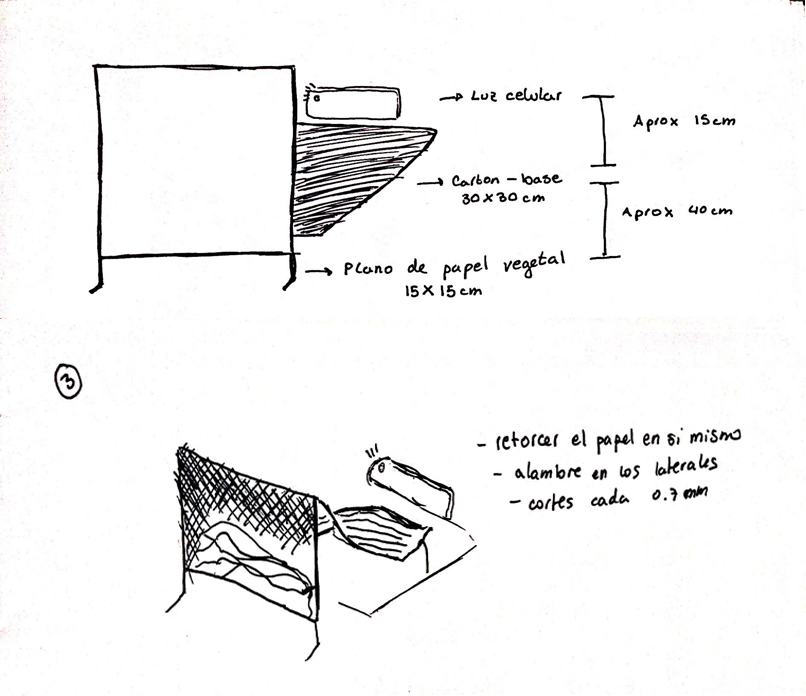 → Luz celular
Aprox 15cm
→ Carbon - base
30 x 30 cm
Aprox 40cm
→ Plano de papel vegetal
15 x 15 cm
3
- retorcer el papel en si mismo
- alambre en los laterales
- cortes cada 0.7 mm